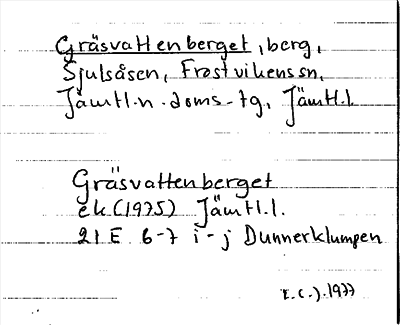 Gräsvattenberget, berg,
Sjulsåsen, Frostvikenssn,
Jämtl.n.doms-tg, Jämtl.l.
Gräsvattenberget
ek(1975) Jämtl.l.
21 E 6-7 i-j Dunnerklumpen
E.C.J.1977